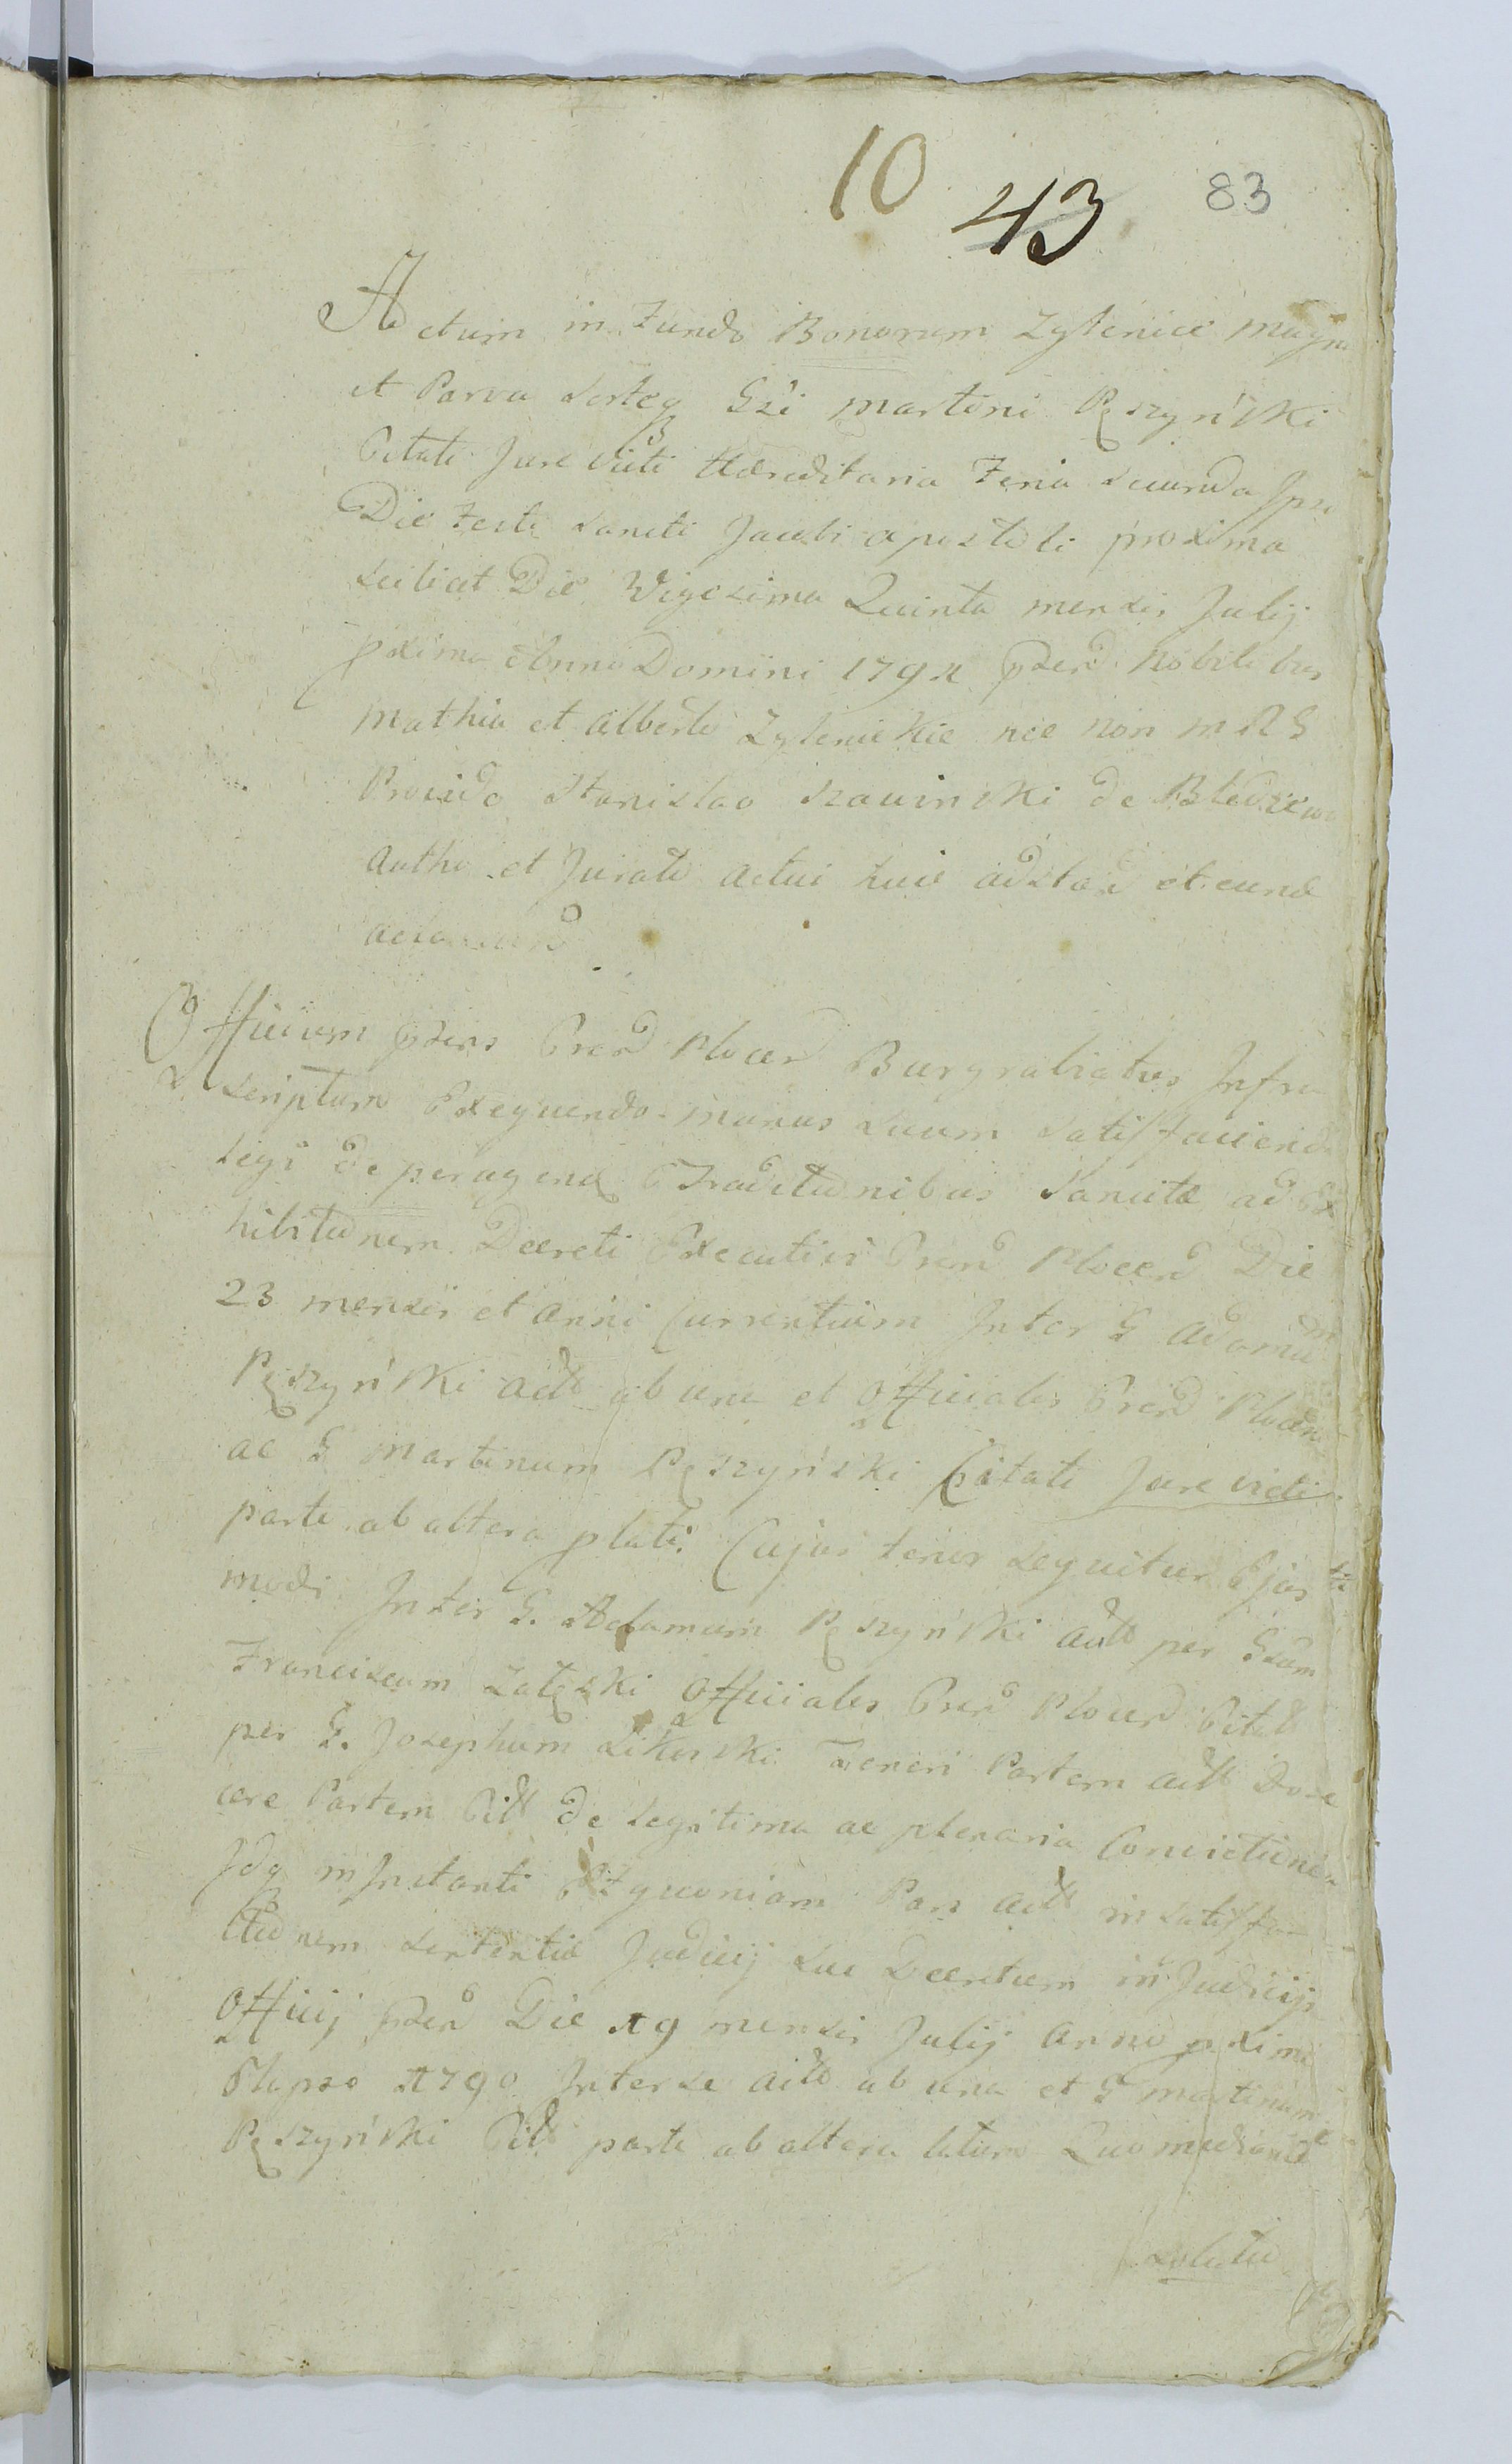 10 43 83
Actum in Fundo Bonorum Zylenice magna
et Parva Sorteq Gsi Martini Pęszyński
Citati Jure victi Hæreditaria Feria Secunda Ipso
Die Festi Sancti Jacobi Apostoli proxima
scilicet Die Vigesima Quinta mensis Julij
pxima Anno Domini 179 pserd Nobilibus
Mathia et Alberto Zylenickie nec non M R S
Provido Stanislao Szawinski de
Autho et Jurato actui huic adstad et eund

Officium pserns Crerd Plocerd Burgrabiatus Infra
scriptum Exequendo munus suum satisfaciendo
legi de peragend Traditionibus Sancitæ ad Ex
hibitionem Decreti Executivi Crerd Plocerd Die
23 mensis et anni Currentium Inter G Adamum
Pęszyński actt ab una et Officiales Crerd Plocen
ac G Martinum Pęszyński Citati Jure victi
parte ab altera plati. Cujus tenor sequitur Ejus
modi Inter G. Adamum Pęszyński actt per Gsum
Franciscum Załęski Officiales Crerd Plocerd Citat
per G. Josephum Sikorski Teneri Partem actt Do
cere Partem Citt de legitima ac plenaria Convictione
Idq in Instanti Et quoniam Pars actt in satisfa
ctionem sententiæ Judicij sui Decretum in Judicijs
Officij pserd Die 19 mensis Julij Anno pximi
Elapso 1790 Inter se actt ab una et G Martinum
Pęszyński Citt parte ab altera latum Quo mediante